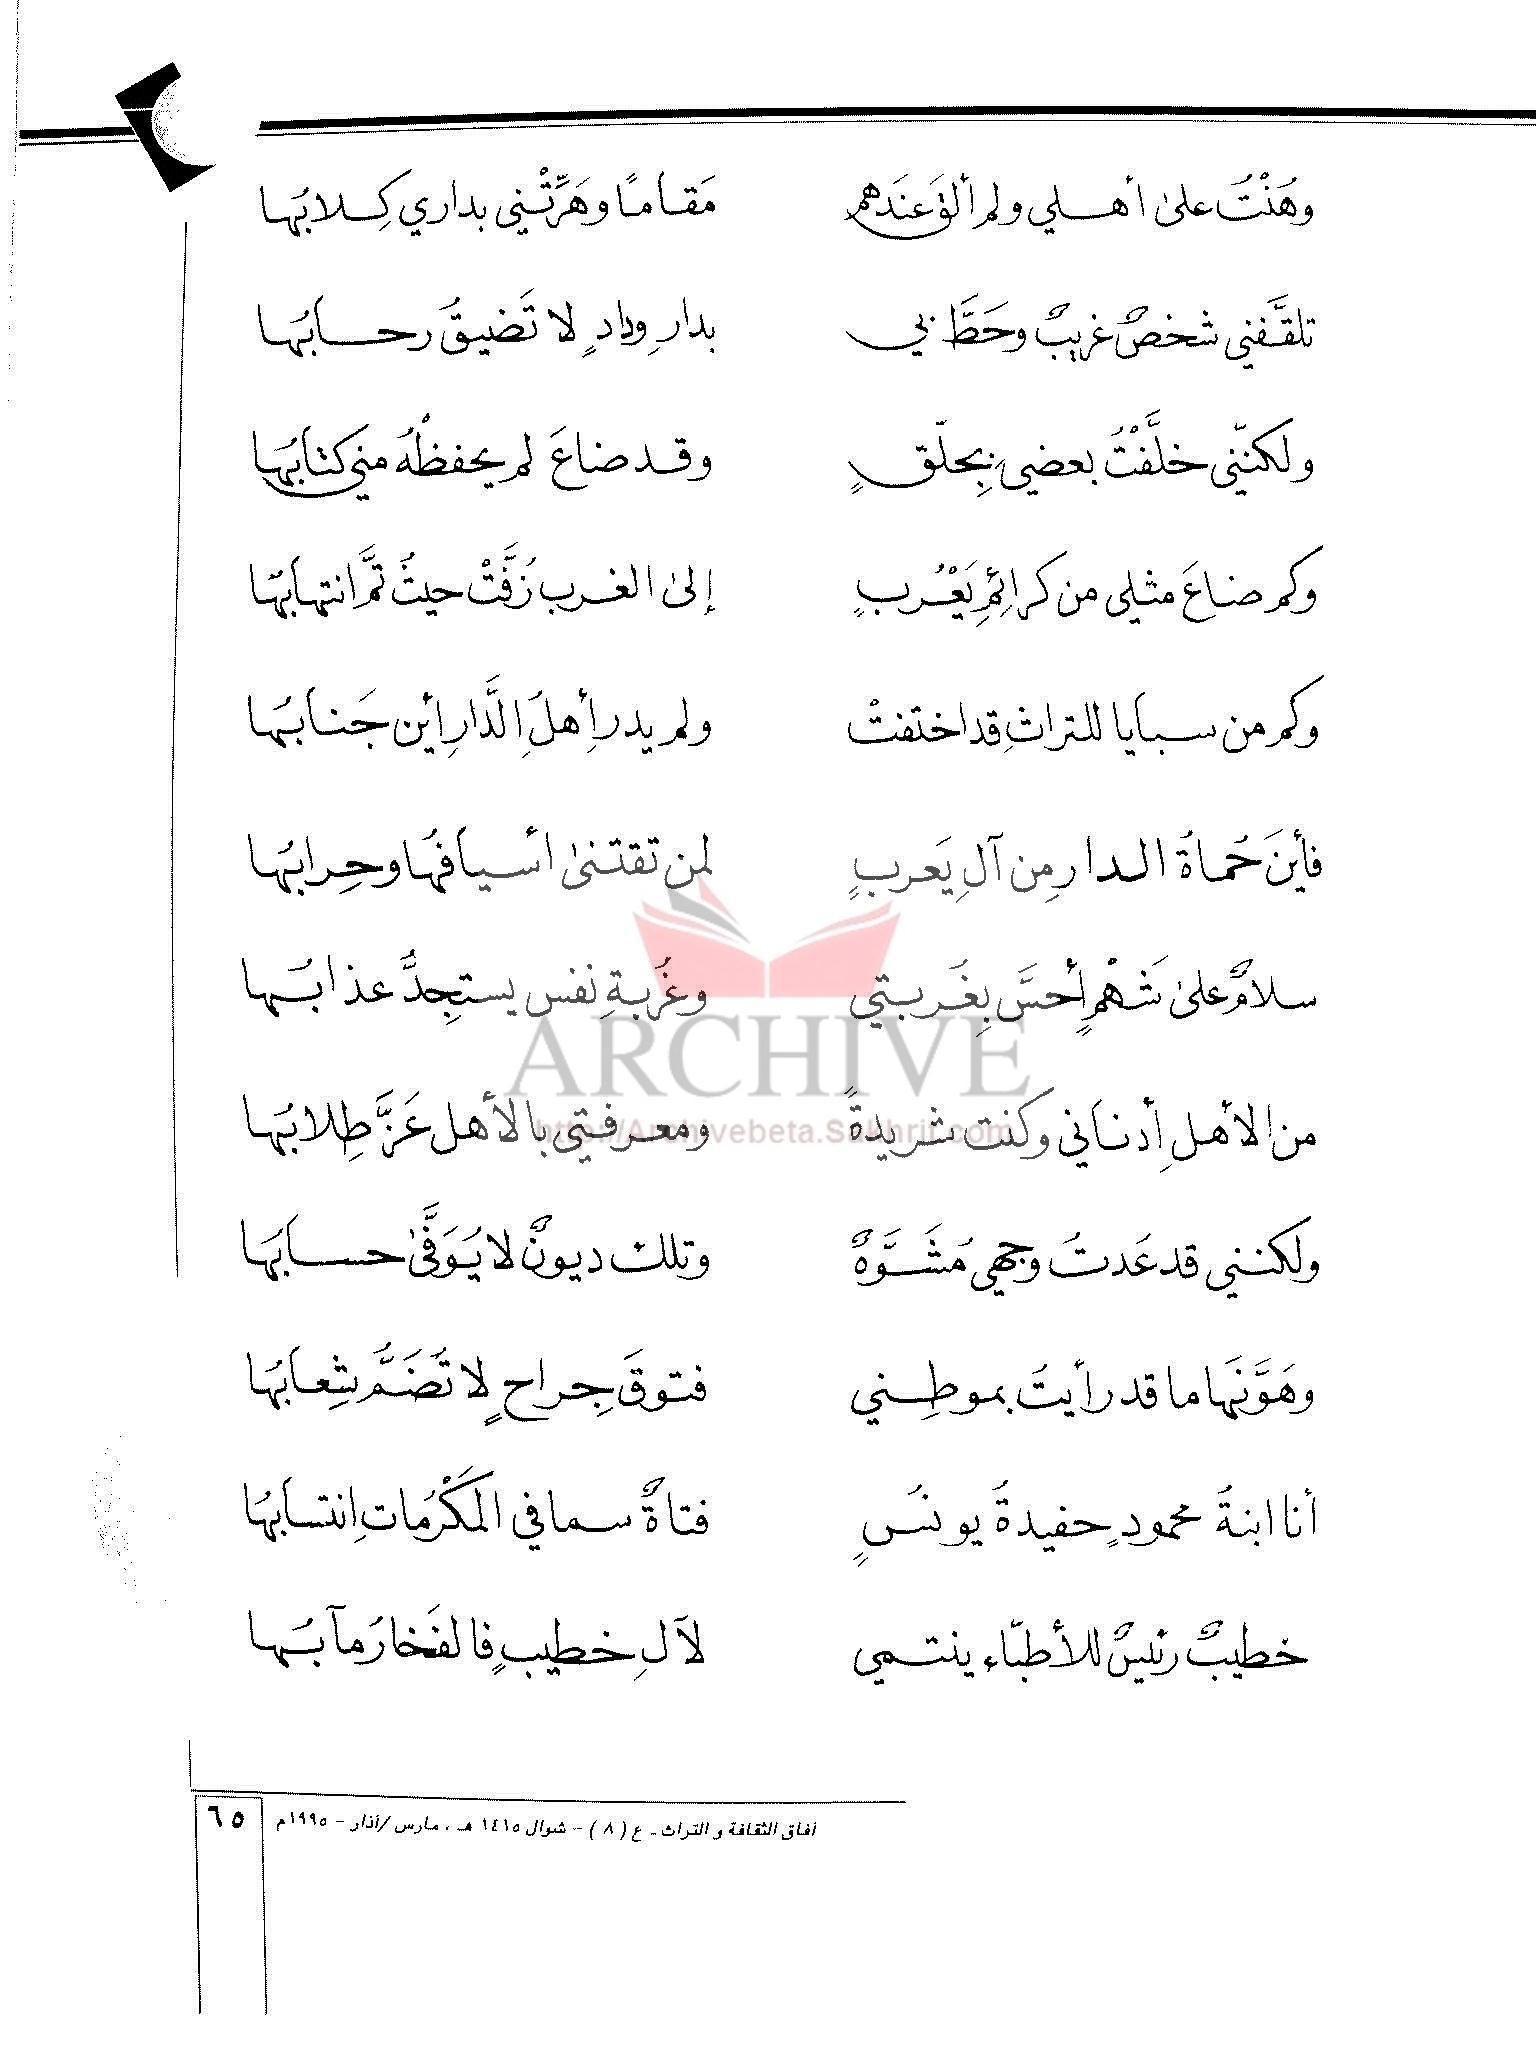 وهُنْتُ على أهلي ولم ألقَ عندَهم مَقامًا وهَرَّتْني بداري كِلابُها
تلقَّفني شخصٌ غريبٌ وحَطَّ بي بدارِ ودادٍ لا تَضيقُ رحابُها
ولكنّني خلَّفْتُ بعضي بِجلّقٍ وقد ضاعَ لم يحفظْهُ مني كتابُها
وكم ضاعَ مثلي من كرائمِ يَعْرُبٍ إلى الغرب زُفَّتْ حيثُ تمَّ انتهابُها
وكم من سبايا للتراثِ قد اختفتْ ولم يدرِ أهلُ الدَّارِ أين جَنابُها
فأينَ حُماةُ الدارِ مِن آلِ يَعربٍ لمن تقتنى أسيافُها وحِرابُها
سلامٌ على شَهْمٍ أحسَّ بِغُربتي وغُربةِ نفس يستجِدُّ عذابُها
من الأهلِ أدناني وكنت شريدةً ومعرفتي بالأهل عَزَّ طِلابُها
ولكنني قد عَدتُ وجهي مُشَوَّهٌ وتلك ديونٌ لا يُوَفَّى حسابُها
وهَوَّنَها ما قد رأيتُ بموطِني فتوقَ جِراحٍ لا تُضَمُّ شِعابُها
أنا ابنةُ محمودٍ حفيدةُ يونُسٍ فتاةٌ سما في المَكْرُماتِ انتسابُها
خطيبٌ رئيسٌ للأطبّاء ينتمي لآلِ خطيبٍ فالفَخارُ مآبُها
آفاق الثقافة و التراث ـ ع (٨) - شوال ١٤١٥ هـ ، مارس /آذار - ١٩٩٥م
٦٥
ARCHIVE
http://Archivebeta.Sakhrit.com